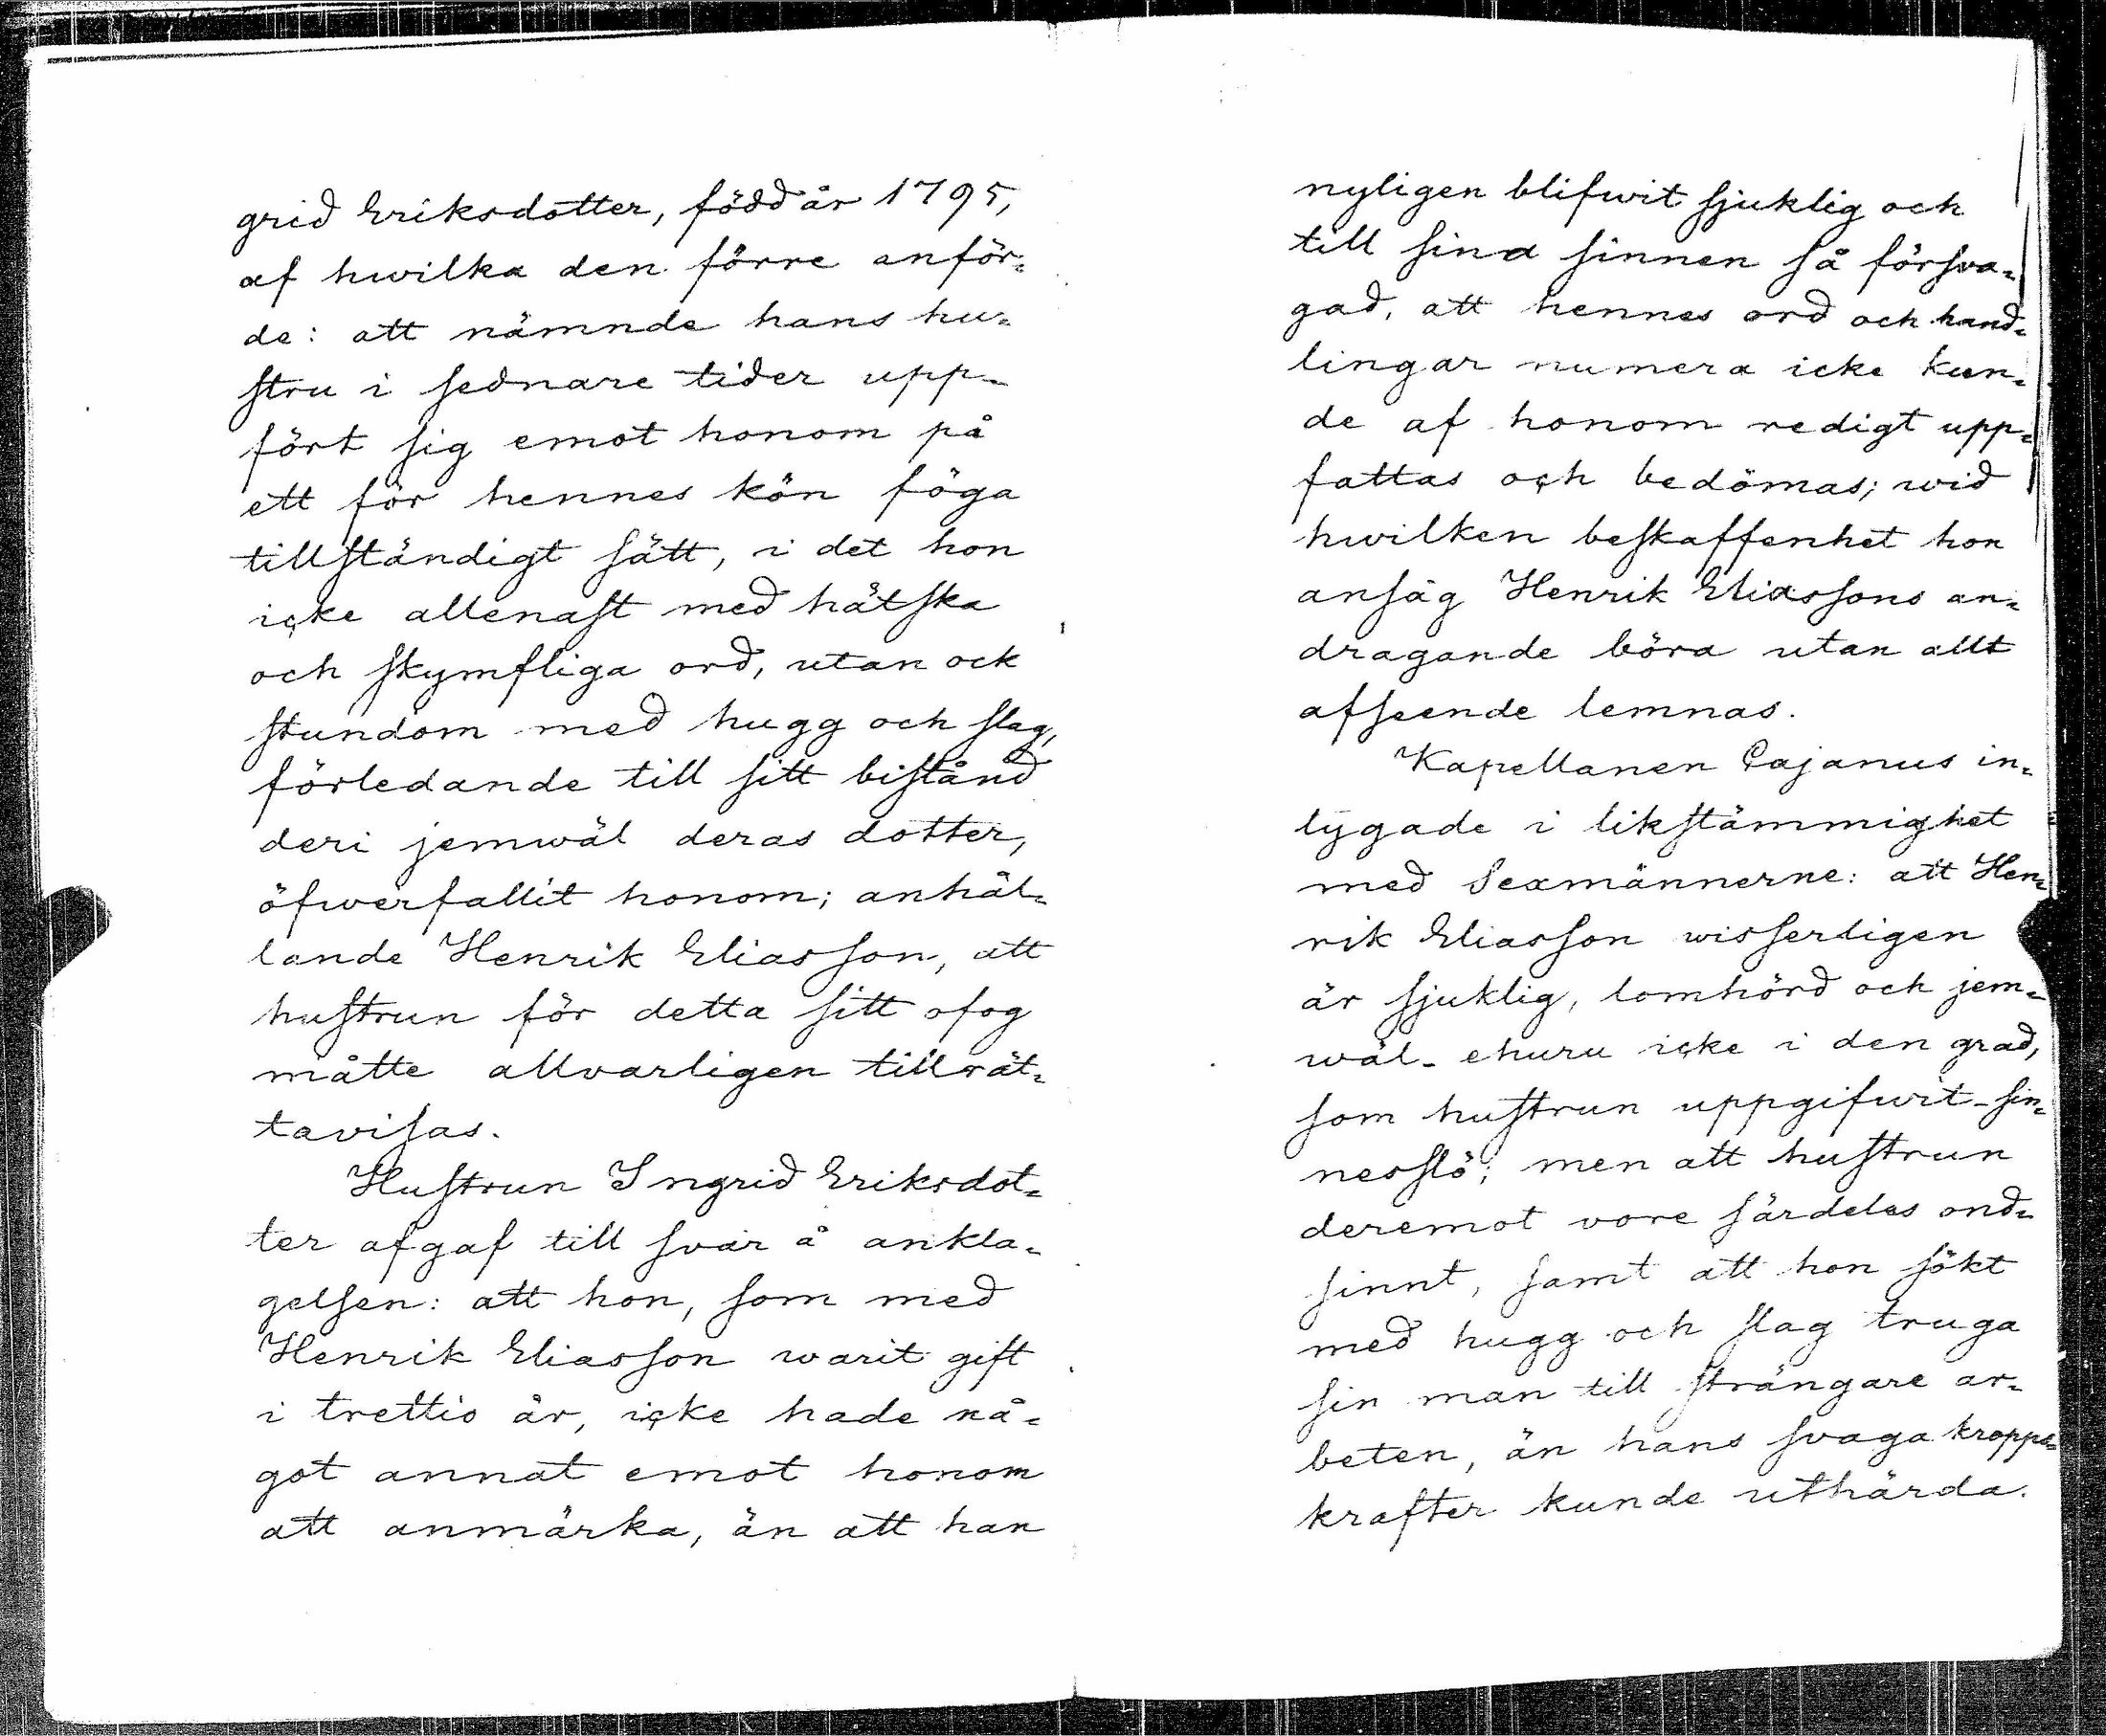 grid Eriksdotter, född år 1795,
af hwilka den förre anför=
de: att nämnde hans hu=
stru i sednare tider upp=
fört sig emot honom på
ett för hennes kön föga
tillständigt sätt, i det hon
icke allenast med hätska
och skymfliga ord, utan ock
stundom med hugg och slag,
förledande till sitt bistånd
deri jemwäl deras dotter,
öfwerfallit honom; anhål=
lande Henrik Eliasson, att
hustrun för detta sitt ofog
måtte allvarligen tillrät=
tavisas.
Hustrun Ingrid Eriksdot=
ter afgaf till svar å ankla=
gelsen: att hon, som med
Henrik Eliasson warit gift
i trettio år, icke hade nå=
got annat emot honom
att anmärka, än att han
nyligen blifwit sjuklig och
till sina sinnen så försva=
gad, att hennes ord och hand=
lingar numera icke kun=
de af honom redigt upp=
fattas och bedömas; wid
hwilken beskaffenhet hon
ansåg Henrik Eliassons an=
dragande böra utan allt
afseende lemnas.
Kapellanen Cajanus in=
tygade i likstämmighet
med Sexmännerne: att Hen=
rik Eliasson wisserligen
är sjuklig, lomhörd och jem=
wäl - ehuru icke i den grad,
som hustrun uppgifwit - sin=
nesslö; men att hustrun
deremot vore särdeles ond=
sinnt, samt att hon sökt
med hugg och slag truga
sin man till strängare ar=
beten, än hans svaga kropps=
krafter kunde uthärda.